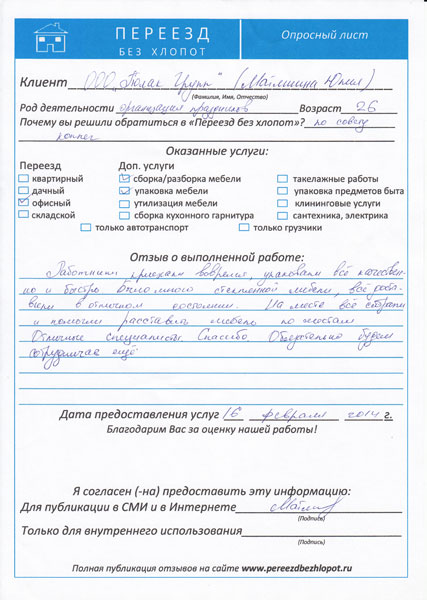 ПЕРЕЕЗД
БЕЗ ХЛОПОТ
Опросный лист
Клиент ООО „Полак Групп“ (Майлишина Юлия)
(Фамилия, Имя, Отчество)
Род деятельности организация праздников Возраст 26
Почему вы решили обратиться в «Переезд без хлопот»? по совету
коллег
Оказанные услуги:
Переезд Доп. услуги
квартирный сборка/разборка мебели такелажные работы
дачный упаковка мебели упаковка предметов быта
офисный утилизация мебели клининговые услуги
складской сборка кухонного гарнитура сантехника, электрика
только автотранспорт только грузчики
Отзыв о выполненной работе:
Работники приехали вовремя, упаковали всё качествен-
но и быстро. Было много стеклянной мебели, всё доста-
вили в отличном состоянии. На месте всё собрали
и помогли расставить мебель по местам.
Отличные специалисты. Спасибо. Обязательно будем
сотрудничать ещё
Дата предоставления услуг 16 февраля 2014 г.
Благодарим Вас за оценку нашей работы!
Я согласен (-на) предоставить эту информацию:
Для публикации в СМИ и в Интернете
(Подпись)
Только для внутреннего использования
(Подпись)
Полная публикация отзывов на сайте www.pereezdbezhlopot.ru